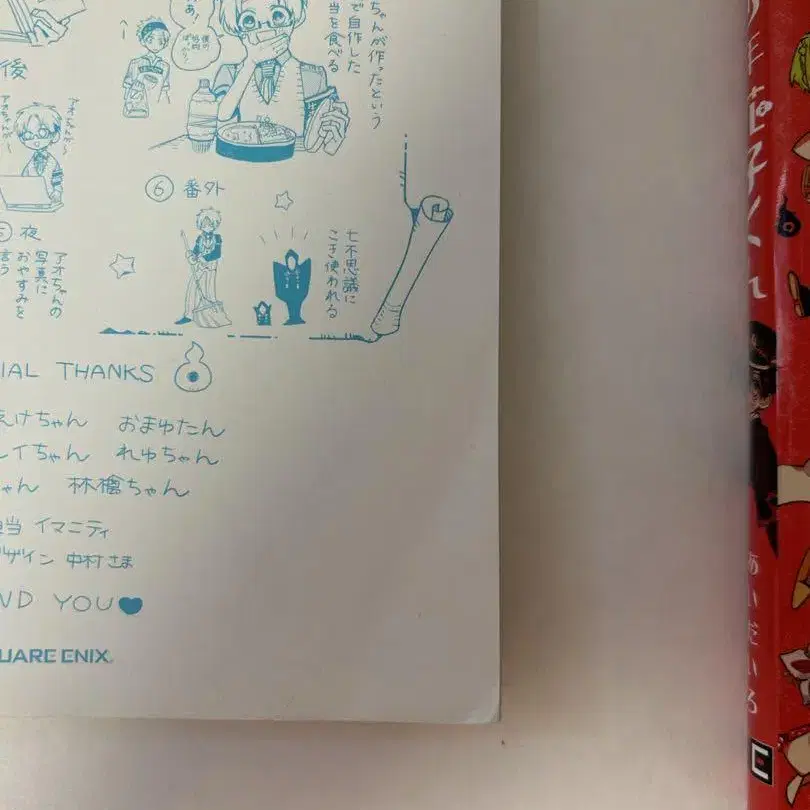 ちゃんが作ったという
で自作した
当を食べる
後
⑥ 番外
七不思議に
こき使われる
夜
アオちゃんの
写真に
おやすみを
言う
IAL THANKS
えけちゃん おまゆたん
レイちゃん れゆちゃん
ちゃん 林檎ちゃん
担当 イマニティ
デザイン 中村さま
ND YOU♥
UARE ENIX
少年花子くん
あいだいろ